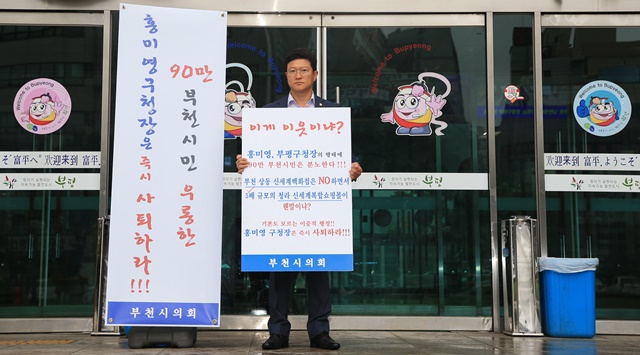 90만 부천시민 우롱한
홍미영구청장은 즉시 사퇴하라!!!
부천시의회
이게 이웃이냐?
홍미영, 부평구청장의 행태에
90만 부천시민은 분노한다!!!
부천 상동 신세계백화점은 NO하면서
5배 규모의 청라 신세계복합쇼핑몰이
웬말이냐?
기본도 모르는 이중적 행정!!
홍미영 구청장은 즉시 사퇴하라!!!
부천시의회
Welcome to Bupyeong
Welcome to Bupyeong
Welcome to Bupyeong
Welcome to Bupyeong
そ"富平"へ 欢迎来到 富平
欢迎来到 富平, ようこそ"富平
부평
부평